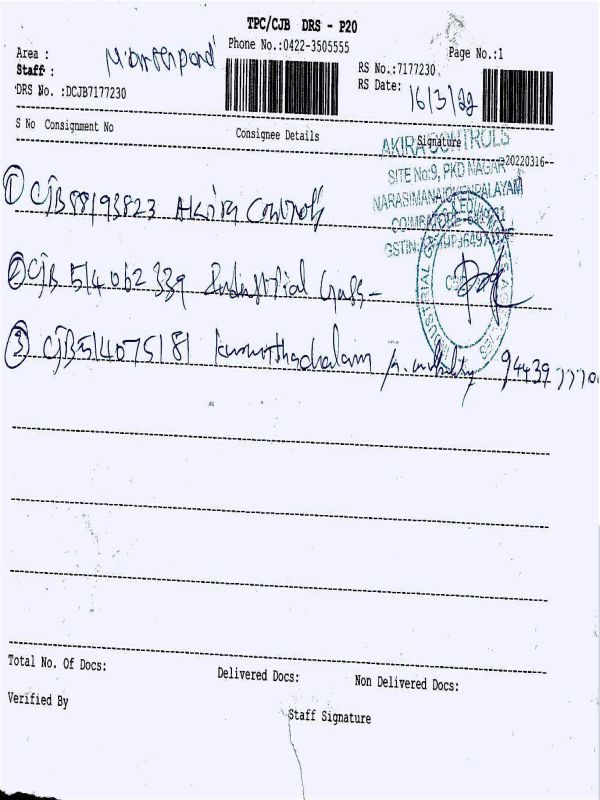 TPC/CJB DRS - P20
Phone No.:0422-3505555
Page No.:1
Area :
Staff :
DRS No. :DCJB7177230
RS No.:7177230
RS Date: 16/3/22
S No Consignment No
Consignee Details
Signature
20220316
AKIRA CONTROLS
SITE No:9, PKD NAGAR
COIMBATORE
GSTIN:
1 CJB88193823 Akira Controls
2 CJB 514062339 Industrial Gass-
3 CJB514075181
Total No. Of Docs:
Delivered Docs:
Non Delivered Docs:
Verified By
Staff Signature